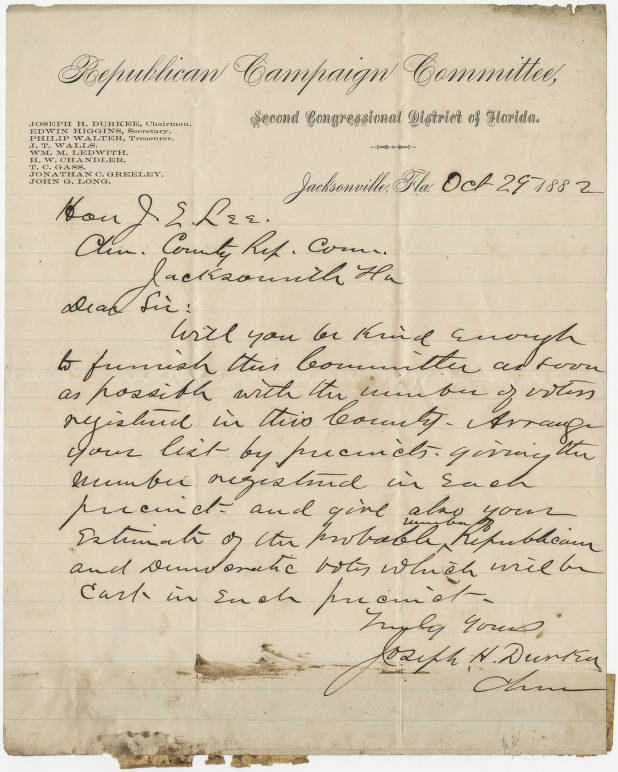 Republican Campaign Committee,
Second Congressional District of Florida.
JOSEPH H. DURKEE, Chairman.
EDWIN HIGGINS, Secretary.
PHILIP WALTER, Treasurer.
J. T. WALLS.
WM. M. LEDWITH.
H. W. CHANDLER.
T. C. GASS.
JONATHAN C. GREELEY.
JOHN G. LONG.
Jacksonville, Fla. Oct 29 1882
Hon J. E. Lee.
Chn. County Rep. Com.
Jacksonville Fla
Dear Sir:
Will you be kind enough
to furnish this Committee as soon
as possible with the number of voters
registered in this County. Arrange
your list by precincts. giving the
number registered in Each
precinct. and give also your
number of
Estimate of the probable Republican
and Democratic votes which will be
Cast in Each precinct.
Truly Yours
Joseph H. Durkee
Chm